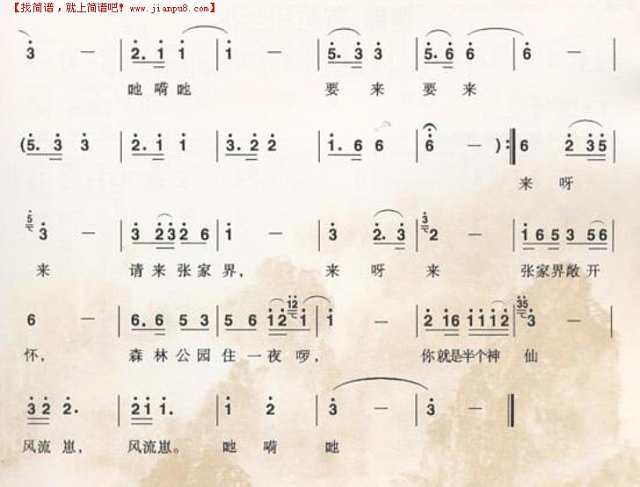 【找简谱，就上简谱吧！www.jianpu8.com】
3 — | 2. 1 1 | 1 — | 5. 3 3 | 5. 6 6 | 6 —
吔嗬吔 要来要来
(5. 3 3 | 2. 1 1 | 3. 2 2 | 1. 6 6 | 6 — ) :‖ 6 2 35
来呀
5 3 — | 3 232 6 | 1 — | 3 2. 3 | 3 2 — | 1 6 5 3 56
来 请来张家界， 来呀来 张家界敞开
6 — | 6. 6 5 3 | 5 6 12 12 1 | 1 — | 2 16 1112 | 35 3 —
怀， 森林公园住一夜啰， 你就是半个神仙
32 2. | 21 1. | 1 2 | 3 — | 3 — ‖
风流崽， 风流崽。 吔嗬吔